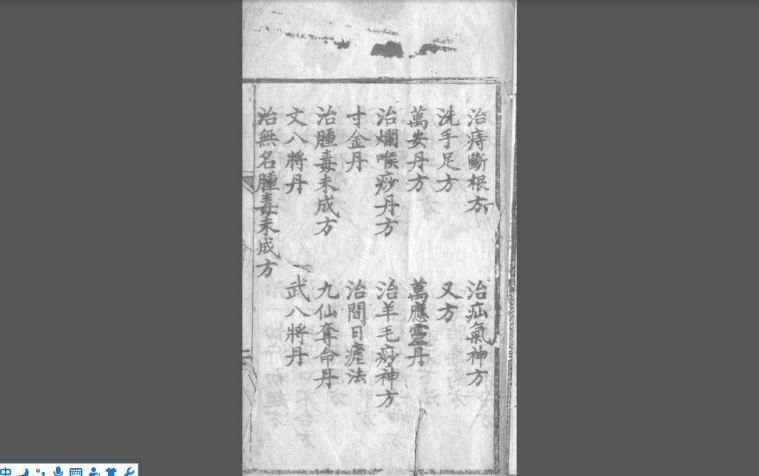 治痔斷根方
治疝氣神方
洗手足方
又方
萬安丹方
萬應靈丹
治爛喉痧丹方
治羊毛痧神方
寸金丹
治間日瘧法
治腫毒未成方
九仙奪命丹
文八將丹
武八將丹
治無名腫毒未成方
中